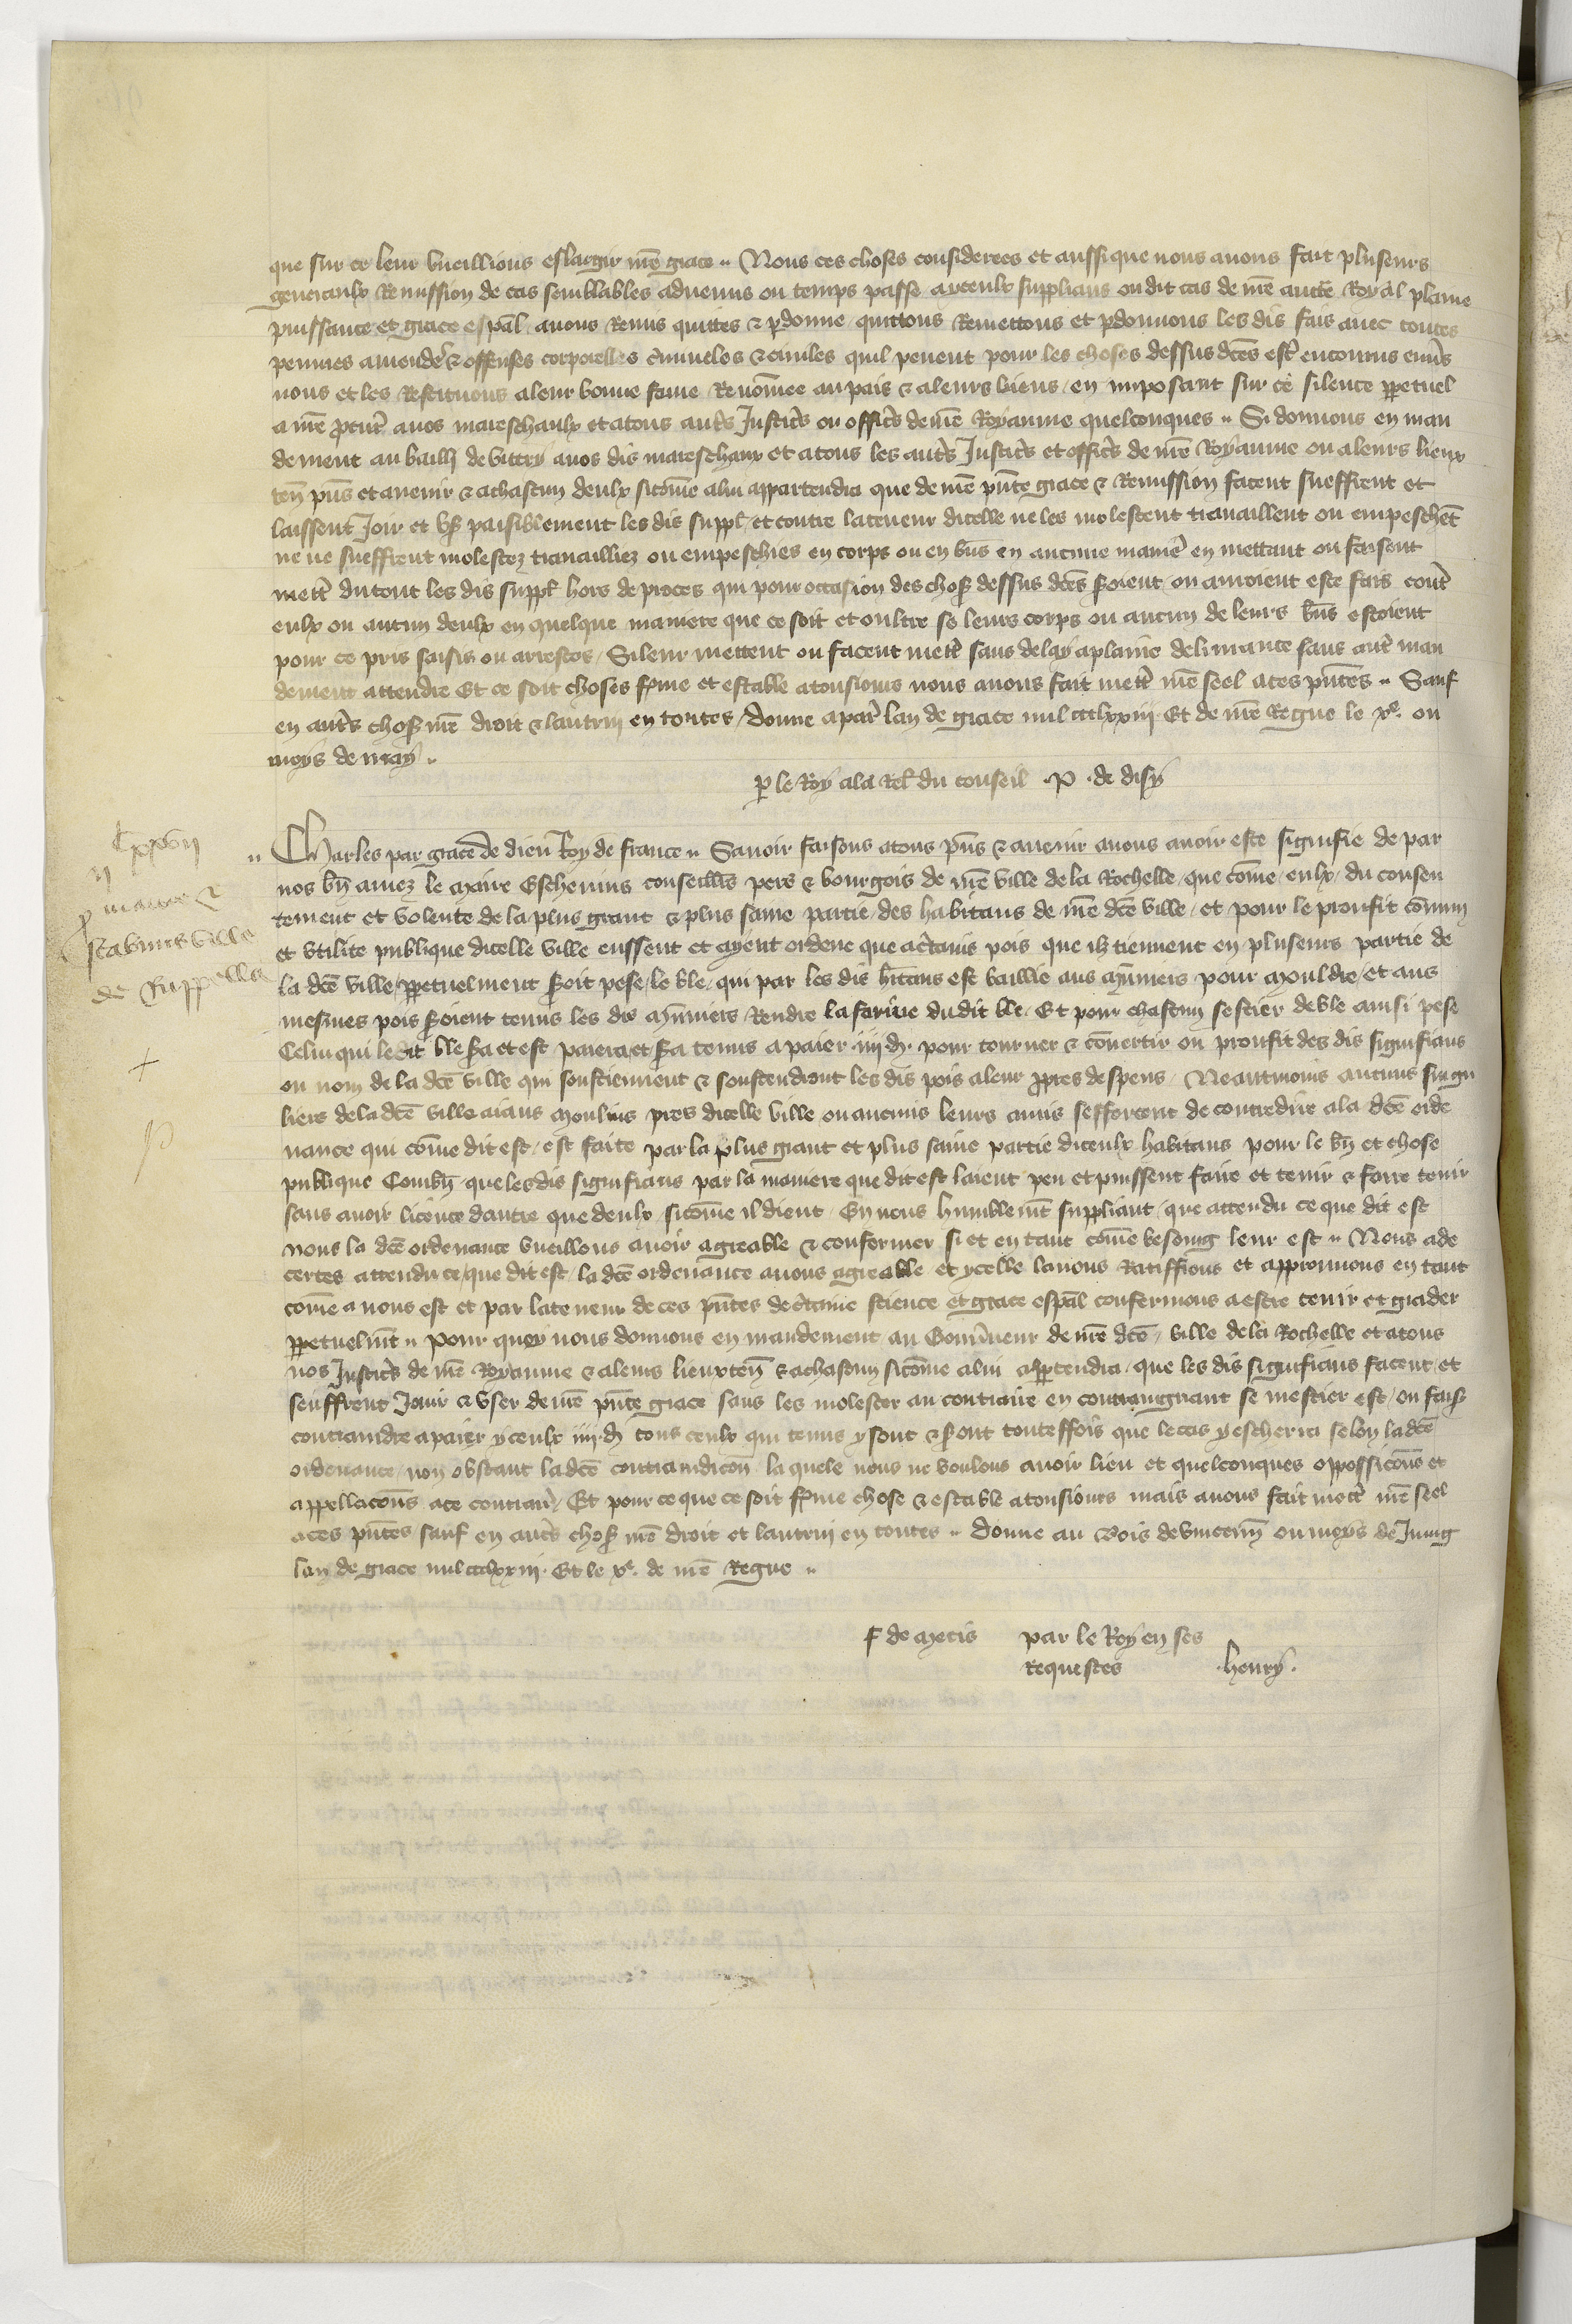 que sur ce leur vueillions eslargir nr̃e grace .. Nous ces choses considerees et aussi que nous auons fait pluseurs
generaulx Remission de cas semblables aduenus ou temps passe a yceulx supplians ou dit cas de nr̃e auctẽ Royal plaine
puissance et grace esp̃al auons Remis quittes & ꝑdonne quittons Remettons et ꝑdonnons les dis fais auec toutes
peinnes amendes & offenses corporelles crimineles & ciuiles quil peuent pour les choses dessus dc̃es estr̃ encourus enũs
nous et les Restituons a leur bonne fame Renom̃ee au pais & a leurs biens en imposant sur ce silence ꝑpetuel
a nr̃e ꝓcur̃ a nos mareschaulx et a tous autr̃s Justic̃s ou offic̃s de nr̃e Royaume quelconques .. Si donnons en man
dement au bailli de vittry a nos dis mareschaux et a tous les autr̃s Justic̃s et offic̃s de nr̃e Royaume ou a leurs lieux
ten̄ pñs et auenir & a chascun deulx sicom̃e a lui appartendra que de nr̃e pñte grace & Remission facent sueffrent et
laissent Joir et vs̃ paisiblement les dis suppl̃ et contre la teneur dicelle ne les molestent trauaillent ou empeschẽt
ne ne sueffrent molestez trauailliez ou empeschies en corps ou en bñs en aucune manie᷑ en mettant ou faisent
mettr̃ du tout les dis suppl̃ hors de proces qui pour occasion des chos̃ dessus dc̃es s̃oient ou auroient este fais contr̃
eulx ou aucun deulx en quelque maniere que ce soit et oultre se leurs corps ou aucun de leurs bñs estoient
pour ce pris saisis ou arrestes / Si leur mettent ou facent mettr̃ sans delay a plaine deliurance sans autr̃ man
dement attendre Et ce soit choses f̃me et estable a tousiours nous auons fait mettr̃ nr̃e seel a ces pñtes .. Sauf
en autr̃s chos̃ nr̃e droit & lautruy en toutes / donne a par̃ lan de grace mil ccclxxiij Et de nr̃e Regne le xe. ou
moys de may ..
ꝑ le Roy a la rel̃ du conseil .P. de disy
Charles par grace de dieu Roy de france .. Sauoir faisons a tous pñs & auenir a nous auoir este signifie de par
nos bñ amez le maire Escheuins conseillr̃s pers & bourgois de nr̃e ville de la Rochelle / que com̃e / eulx / du consen
tement et volente de la plus grant & plus saine partie / des habitans de nr̃e dc̃e ville / et pour le proufit com̃un
et vtilite publique dicelle ville eussent et ayent ordene que a c̃tains pois que ilz tiennent en pluseurs partie de
la dc̃e ville / ꝑpetuelment s̃oit pese / le ble / qui par les dis hitans est baillie aus mũniers pour mouldre / et aus
mesmes pois s̃oient tenus les dis mũniers Rendre la farine dudit ble / Et pour chascun sestier de ble ainsi pese
Celui qui ledit ble s̃a et est paiera et s̃a tenus a paier iiij d̃. pour tourner & cõuertir ou proufit des dis signifians
ou nom de la dc̃e ville qui soustiennent & soustendront les dis pois a leur ꝓpres despens / Neantmoins aucuns singu
liers de la dc̃e ville aians moulins pres dicelle ville ou aucuns leurs amis sefforcent de contredire a la dc̃e orde
nance qui com̃e dit est / est faite par la plus grant et plus saine partie diceulx habitans pour le bñ et chose
publique Combñ que les dis signifians par la maniere que dit est laient peu et puissent faire et tenir & faire tenir
sans auoir licence dautre que deulx / sicom̃e il dient / En nous humblemẽt suppliant / que attendu ce que dit est
nous la dc̃e ordenance vueillons auoir agreable & confermer / si et en tant com̃e besoing leur est .. Nous ade
certes attendu ce / que dit est / la dc̃e ordenance auons agreable et ycelle lauons Ratiffions et approuuons en tant
com̃e a nous est et par la teneur de ces pñtes de c̃taine science et grace esp̃al confermons a estre tenir et garder
ꝑpetuelmẽt .. pour quoy nous donnons en mandement au Gouũneur de nr̃e dc̃e / ville de la Rochelle et a tous
nos Justic̃s de nr̃e Royaume & a leurs lieuxten̄ & a chascun sicom̃e a lui apꝑtendra / que les dis signifians facent et
seuffrent Jouir & vser de nr̃e pñte grace sans les molester au contraire en contraingnant se mestier est / ou fais̃
contraindre a paier yceulx iiij. d̃ tous ceulx qui tenus y sont & s̃ont touteffois que le cas y escherra selon la dc̃e
ordenance / non obstant la dc̃e contraudicõn la quele nous ne voulons auoir lieu et quelconques opposicõns et
appellacõns a ce contrair̃ / Et pour ce que ce soit f̃me chose & estable a tousiours mais auons fait mettr̃ nr̃e seel
a ces pñtes sauf en autr̃s chos̃ nr̃e droit et lautruy en toutes .. donne au bois de vincenñ ou moys de Juing
lan de grace mil ccclxxiij. Et le xe. de nr̃e Regne ..
maiore &
scabinis ville
de Ruppella
+
F de metis par le Roy en ses
Requestes .henry.